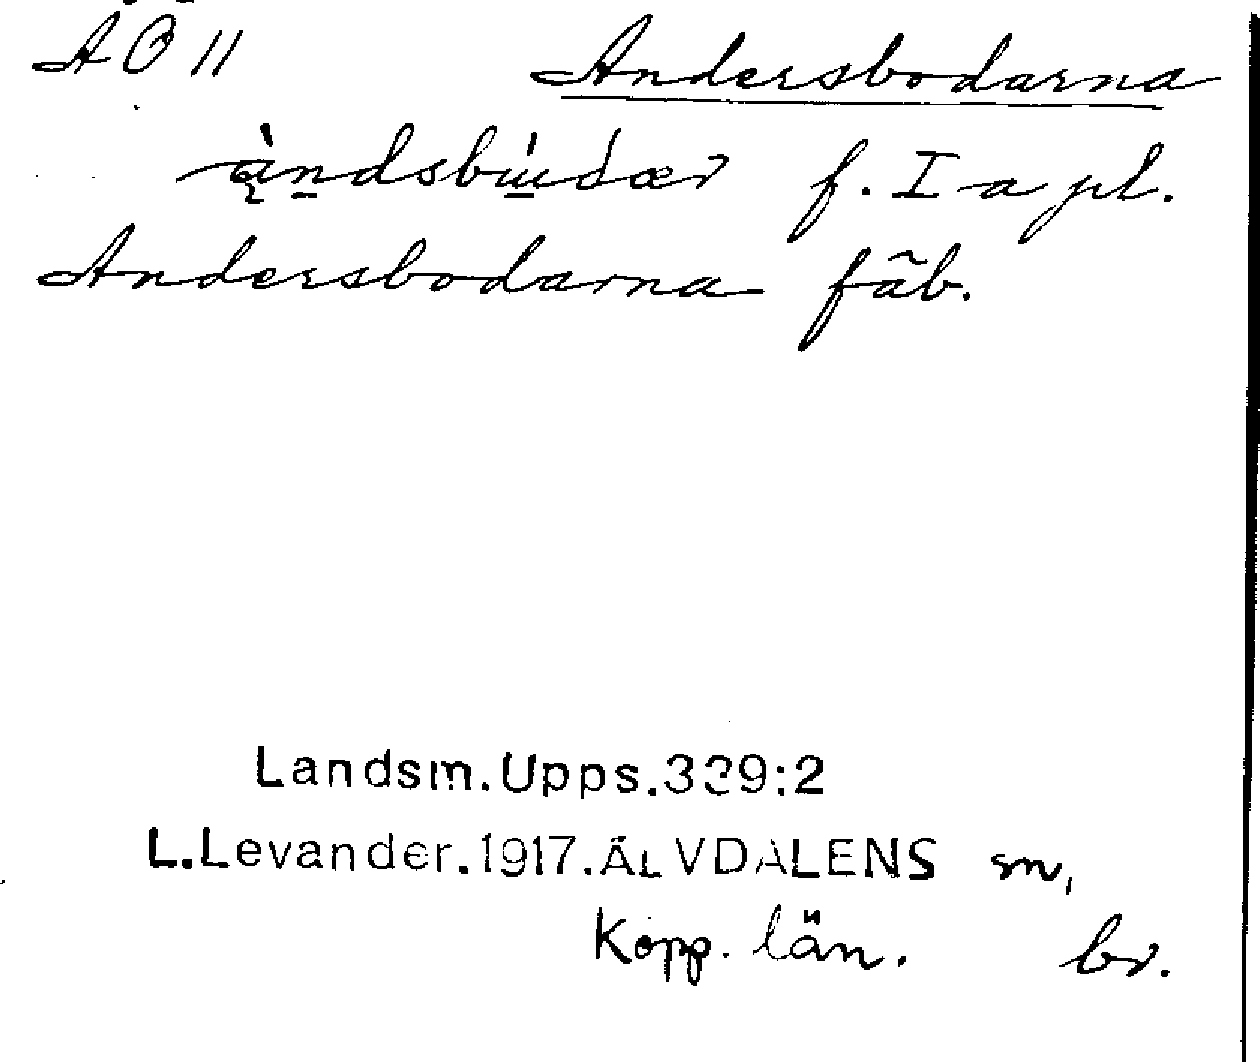 ÄÖ 11 Andersbodarna
f. I a pl.
Andersbodarna fäb.
Landsm.Upps.339:2
L.Levander.1917.ÄLVDALENS sn,
Kopp. län. br.